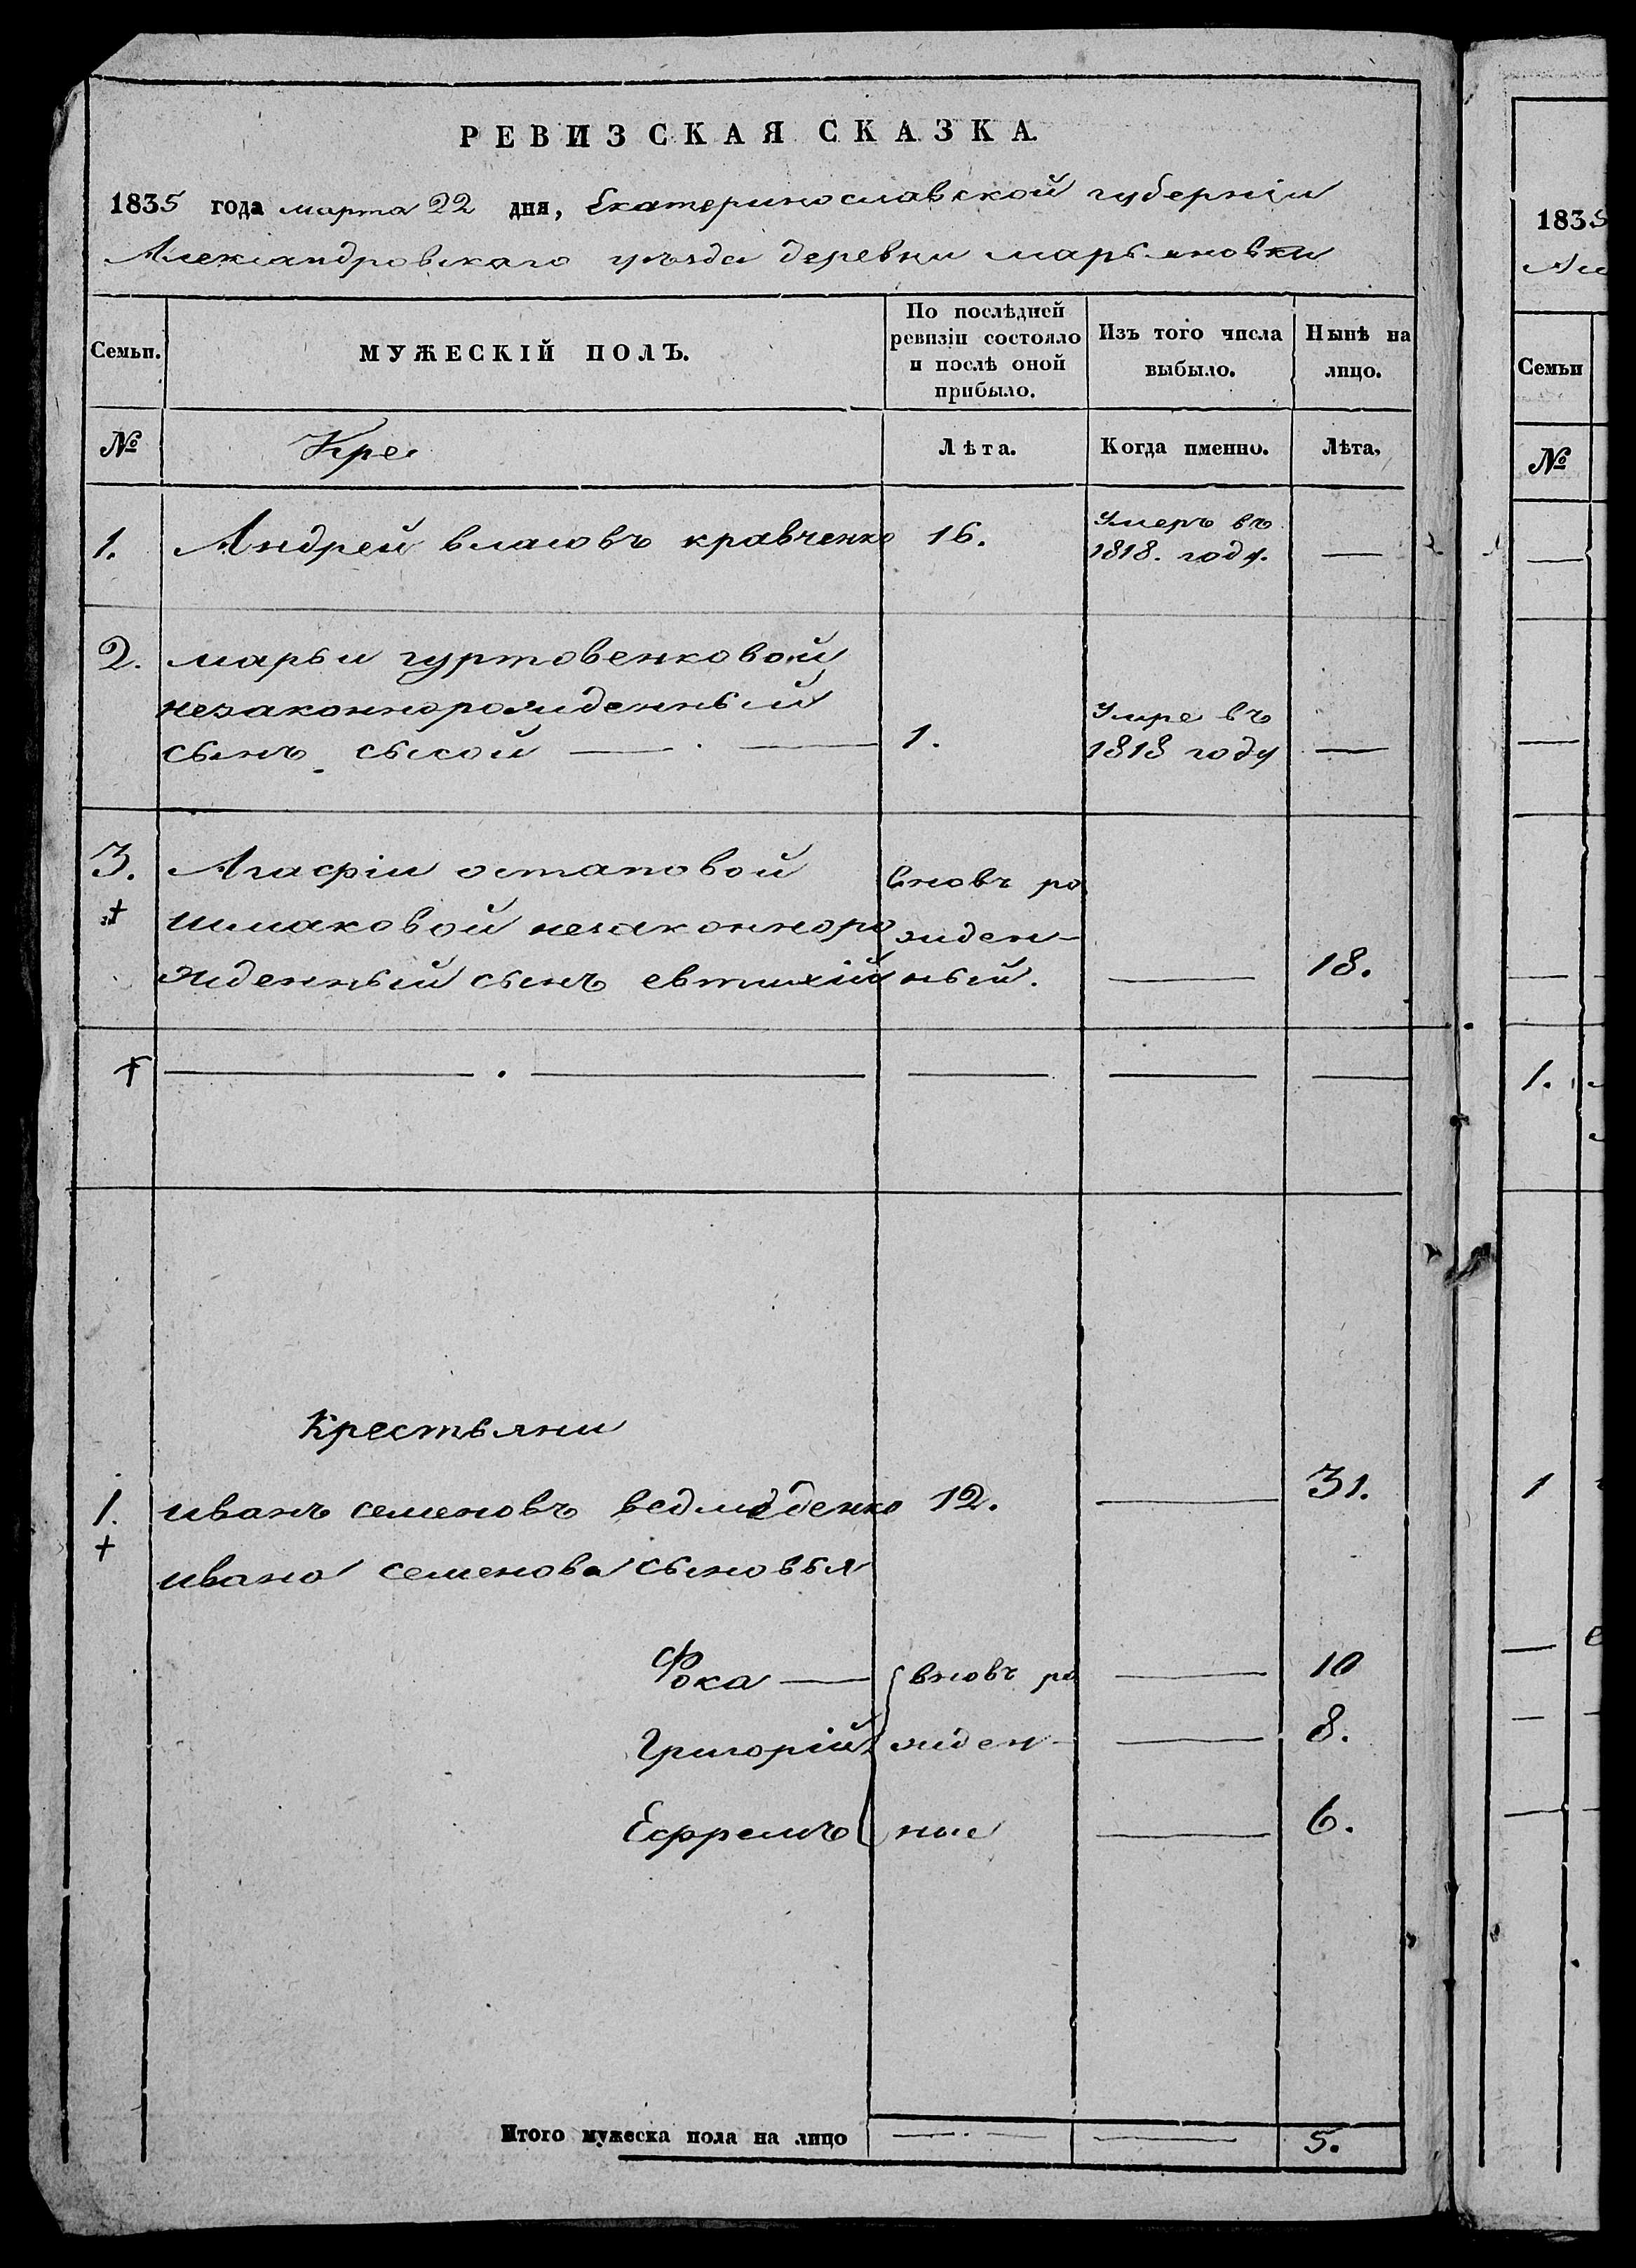 РЕВИЗСКАЯ СКАЗКА
1835 года марта 22 дня, Екатеринославской губерніи
Александровскаго уѣзда деревни марьяновки
Семьи.
МУЖЕСКІЙ ПОЛЪ.
По послѣдней
ревизіи состояло
и послѣ оной
прибыло.
Изъ того числа
выбыло.
Нынѣ на
лицо.
№
Кре
Лѣта.
Когда именно.
Лѣта.
1. Андрей власовъ кравченко 16. Умеръ въ
1818. году. —
2. марьи гуртовенковой
незаконнорожденный
сынъ сысой — . — 1. Умре въ
1818 году —
3. Агафіи остаповой вновь ро
шмаковой незаконноро жден-
жденный сынъ евтихій ный. — 18.
— . — — — —
Крестьяни
1. иванъ семеновъ ведмѣденко 12. — 31.
ивана семенова сыновья
Фока — вновь ро — 10
Григорій жден- — 8.
Ефремъ ные — 6.
Итого мужеска пола на лицо — . — — 5.
1835
Семьи
№
1.
1